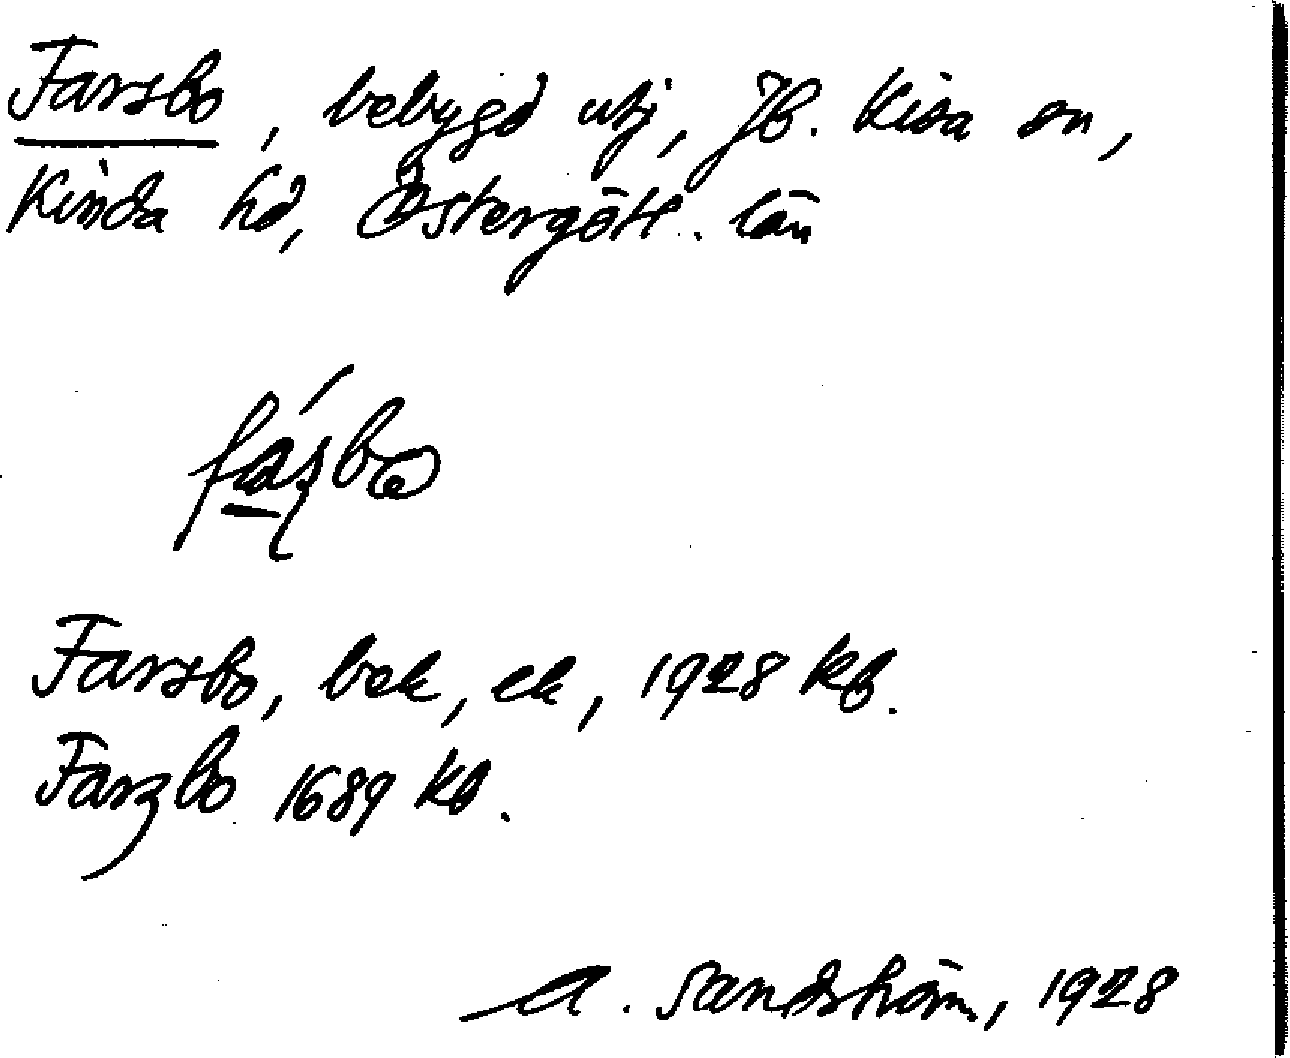 Farsbo, bebygd utj, JB. Kisa sn,
Kinda hd, Östergötl. län
Farsbo, bek, ek, 1928 kb.
Farzbo 1689 kb.
A. Sandström, 1928